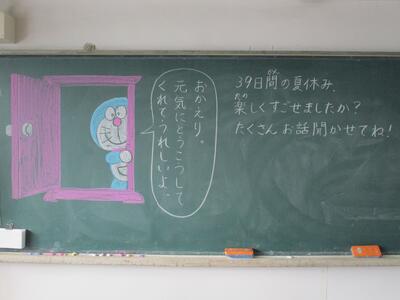 おかえり。
元気にとうこうして
くれて、うれしいよ。
39日間の夏休み、
楽しくすごせましたか？
たくさんお話聞かせてね！